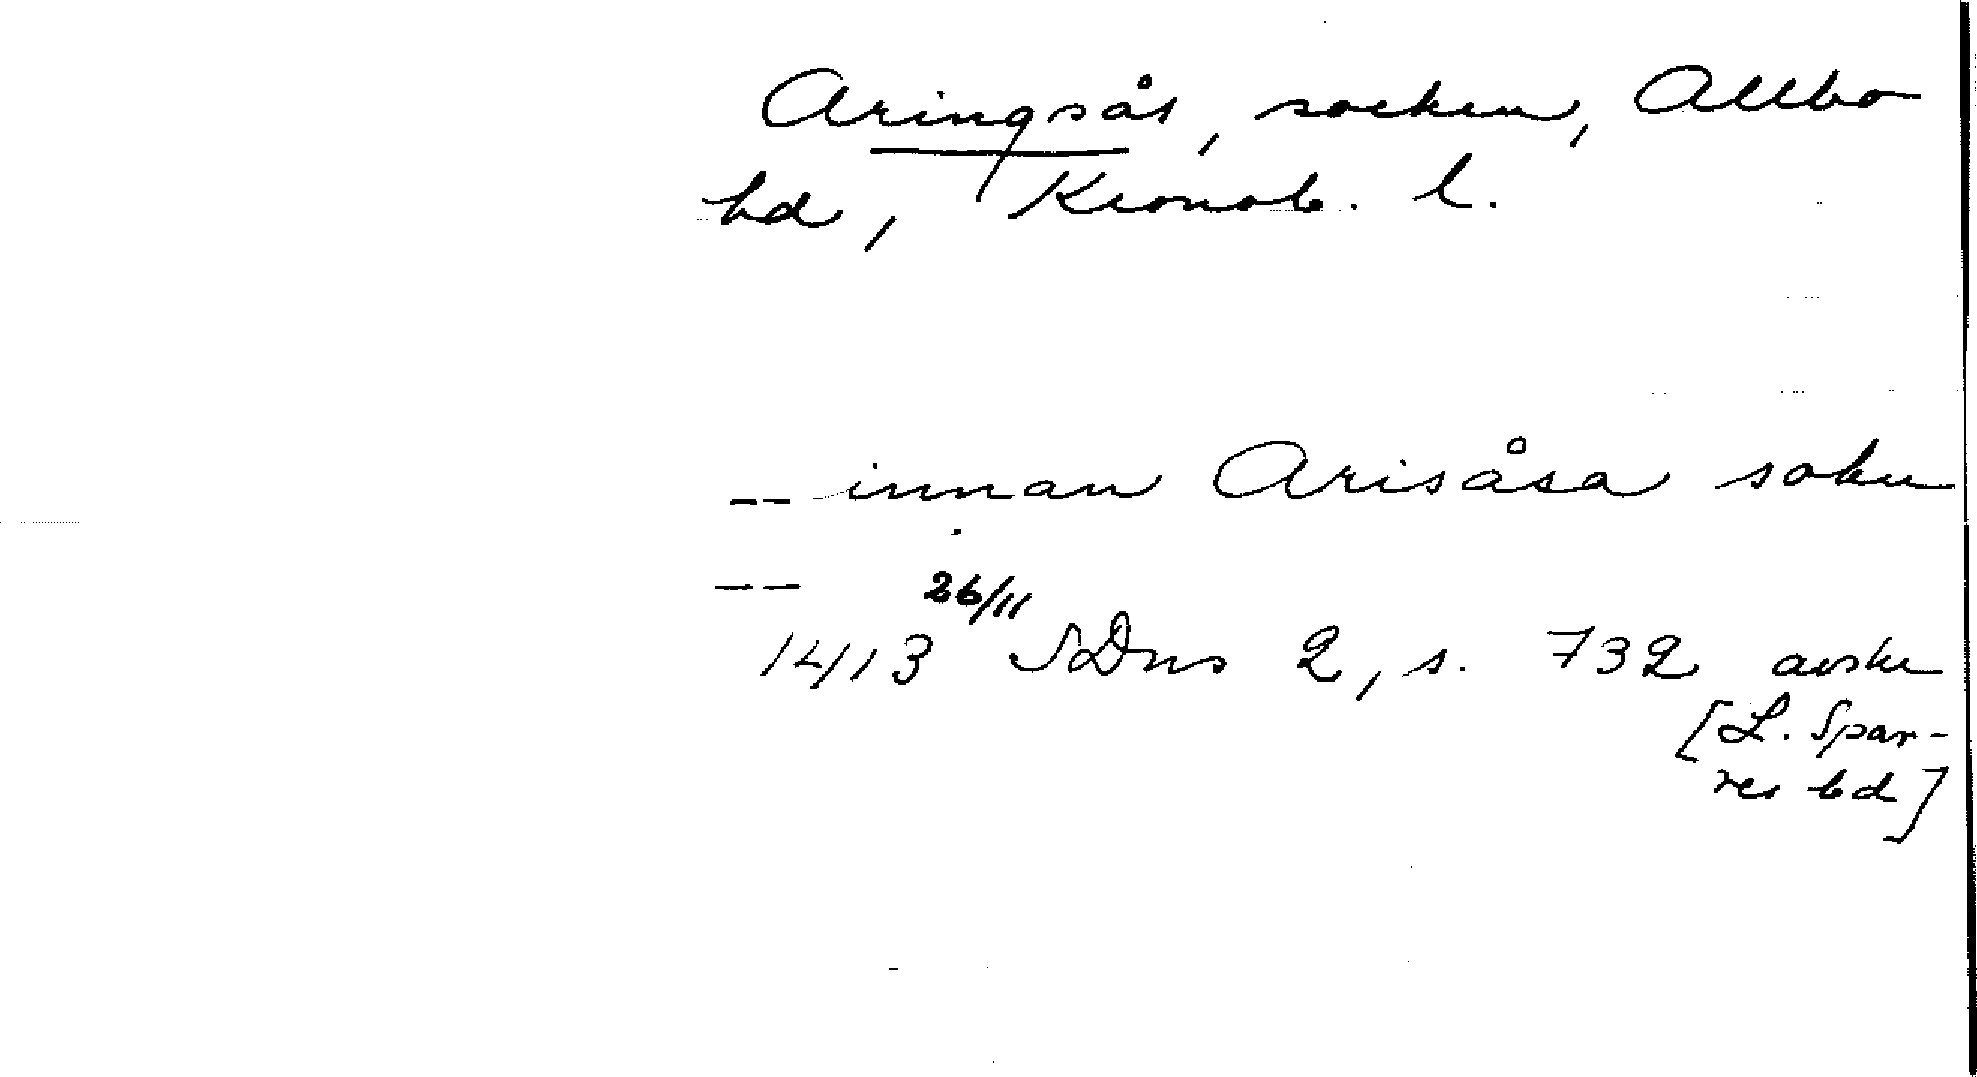 Aringsås, socken, Allbo
hd, Kronob. l.
-- innan Arisåsa sokn
--
1413 26/11 SDns 2, s. 732 avskr
[L. Spar-
res bd]